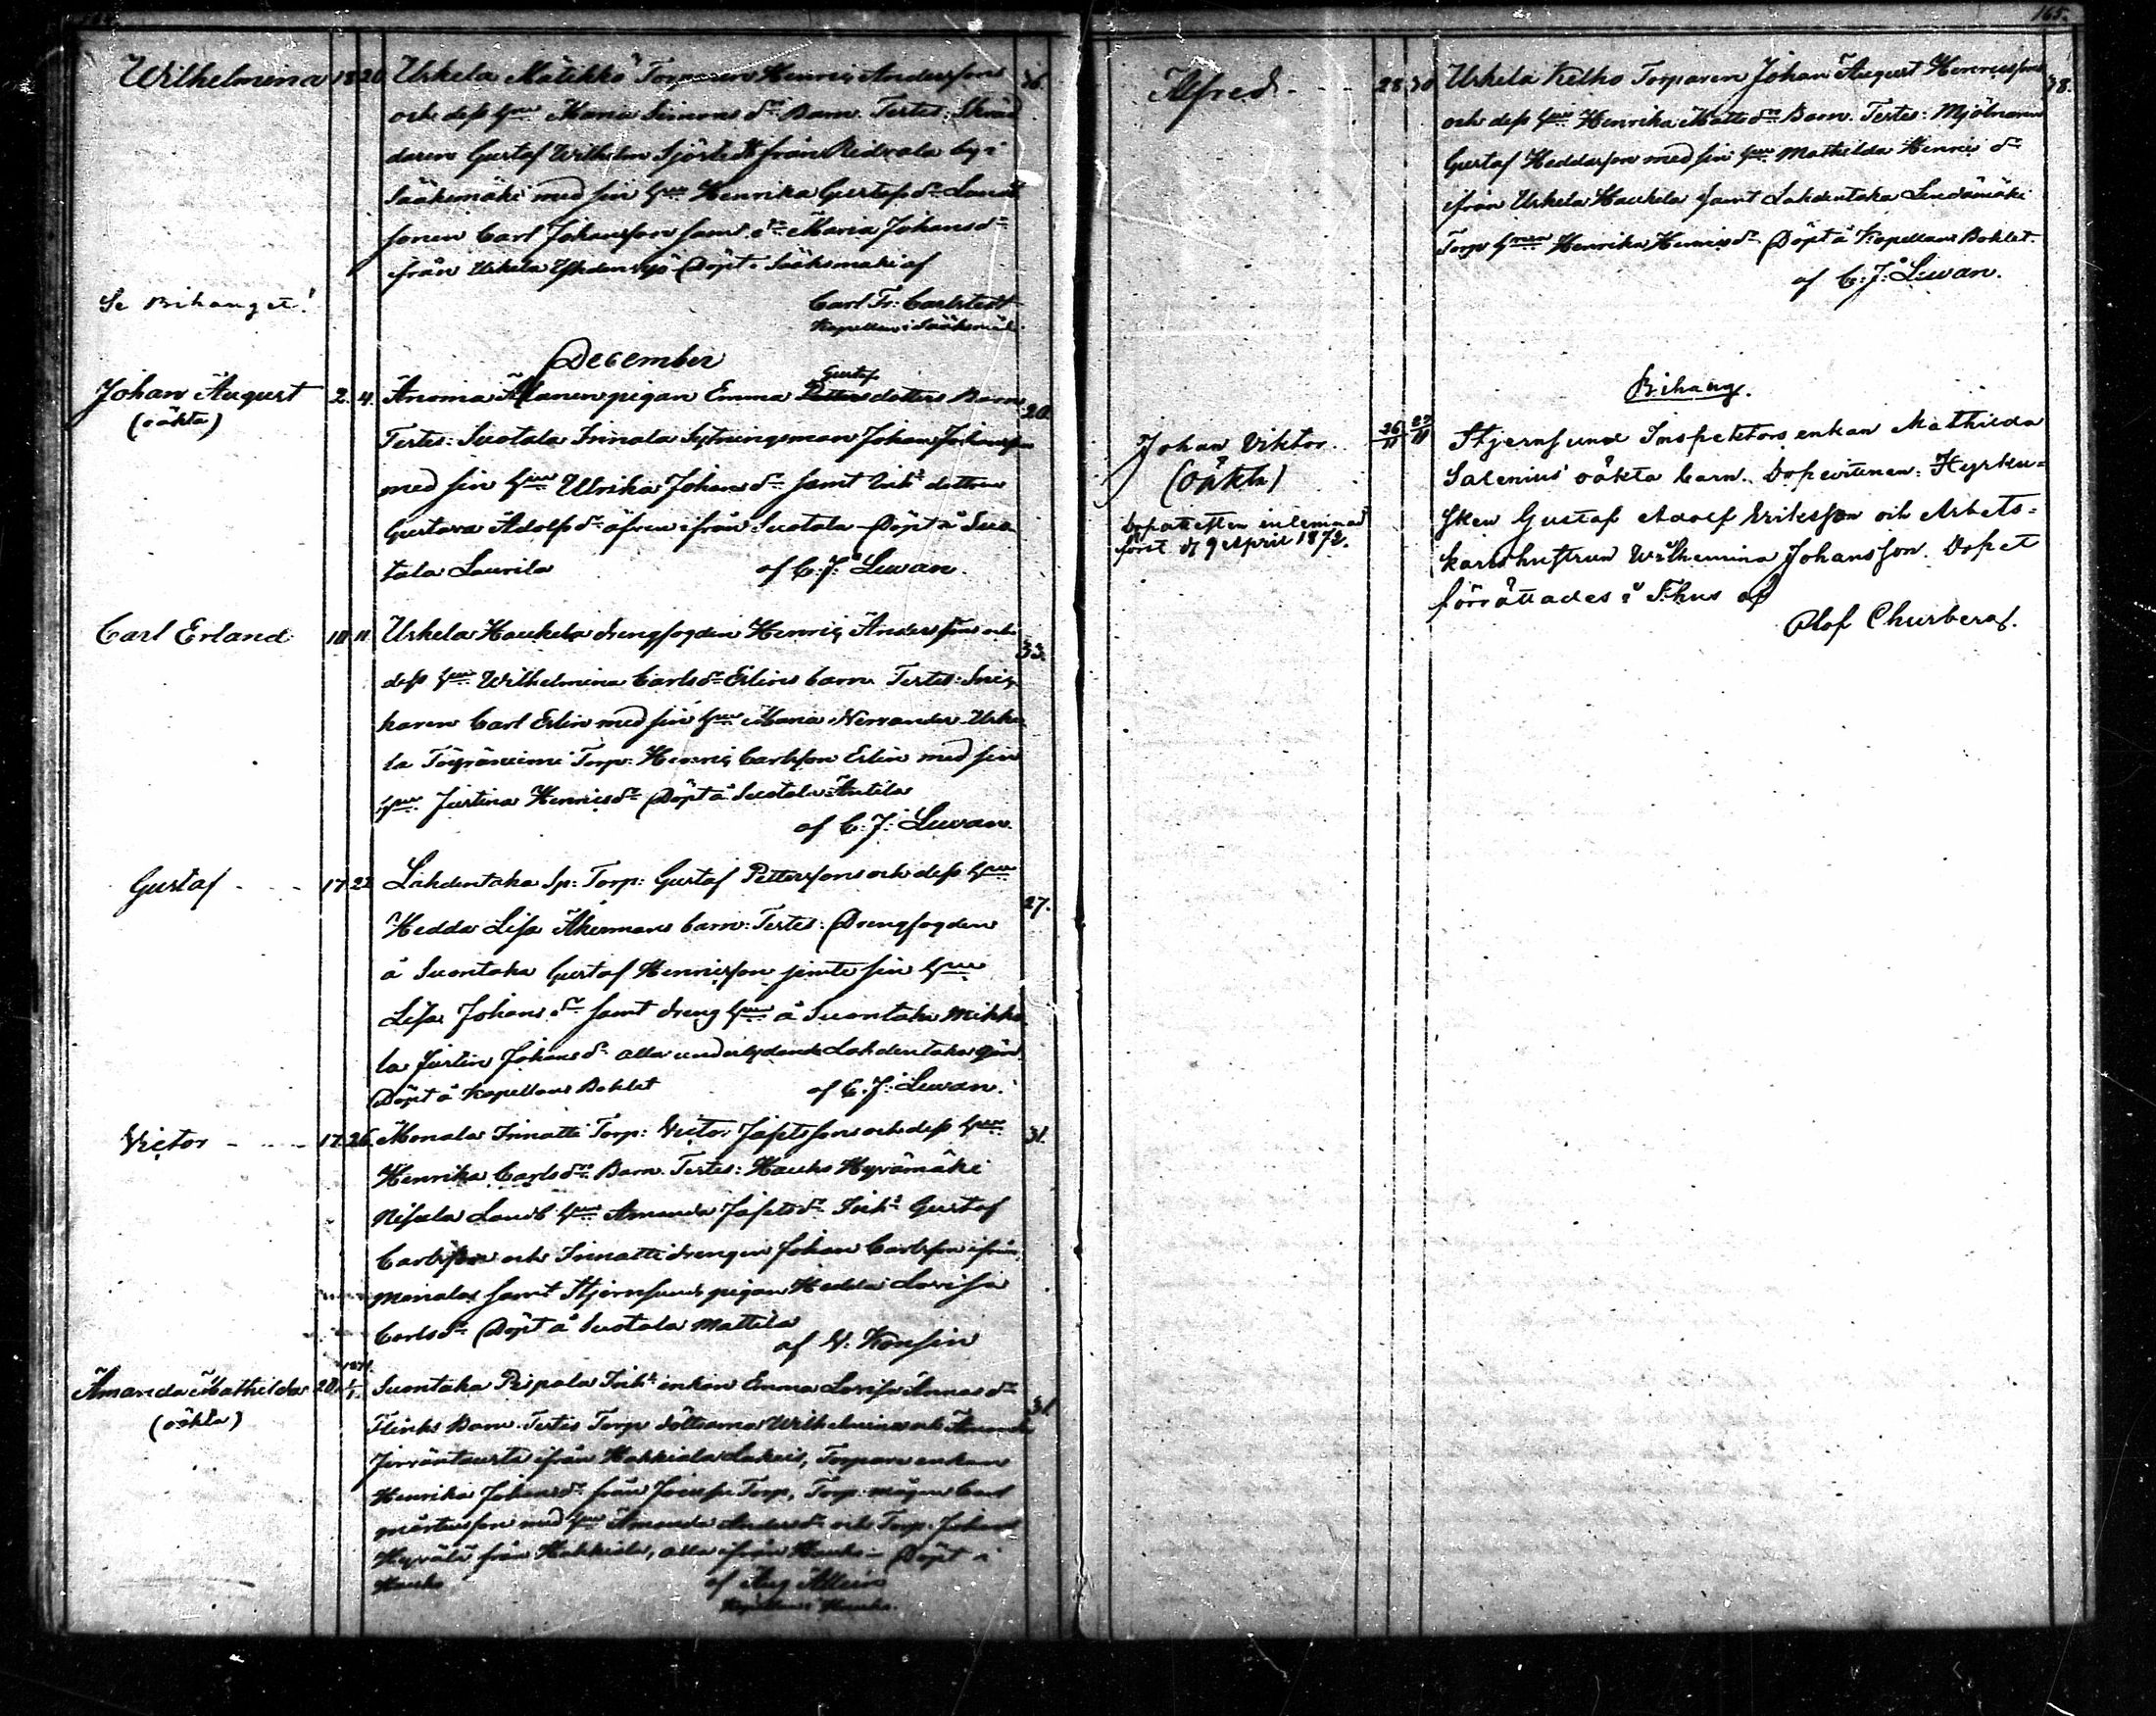 165.
Wilhelmina 18 20 Urkela Mätikkö Torparen Henric Andersson 36.
och dess Hru Maria Simons dr Barn. Testes: Skräd
daren Gustaf Wilhelm Sjöstedt från Ridvala by i
Sääksmäki med sin Hru Henrika Gustafs dr Land
Carl Johansson samt Maria Johans dr
från Urkela Döpt i Sääksmäki af
Carl Fr: Carlstedt
Kapellan i Sääksmäki
Se Bihanget!
December
Johan August 2. 4. Annia Alanen pigan Emma Gustaf Petters dotters Barn 20.
(oäkta)
Testes: Suotala Innala Sytningsman Johan Johansson
med sin Hru Ulrika Johans dr samt Inhs dottren
Gustava Adolfs dr äfven ifrån Suotala Döpt å Suo
tala Laurila af C. J. Lewan.
Carl Erland 10 11. Urkela Haukela drengfogden Henric Anderssons och 33.
dess Hru Wilhelmina Carls dr Erlins barn Testes: Snic
karen Carl Erlin med sin Hru Maria Nervander Urke
la Töyräniemi Torp: Henric Carlsson Erlin med sin
Hru Justina Henrics dr Döpt å Suotala Antila
af C. J. Lewan.
Gustaf - - - 17. 22 Lahdentaka Sp: Torp: Gustaf Petterssons och dess Hru 27.
Hedda Lisa Åkermans barn: Testes: Drengfogden
å Suontaka Gustaf Henricsson jemte sin Hru
Lisa Johans dr samt dreng Hru å Suontaka Mikko
la Justin Johans dr alla underlydande Lahdentaka gård
Döpt å Kapellans Bohlet af C. J. Lewan.
Victor - - - 17. 26. Monala Innatti Torp: Victor Jafetssons och dess Hru 31.
Henrika Carls dr Barn. Testes: Hauho Hyrämäki
Nisula Landb Hru Amanda Jafets dr Inhs Gustaf
Carlsson och Innatti drengen Johan Carlsson ifrån
Monala samt Stjernsunds pigan Hedda Lovisa
Carls dr Döpt å Suotala Mattila
af V. Konsin
Amanda Mathilda 20. 1871. 1/1. Suontaka Pispala Inhs enkan Emma Lovisa Annas dr 31.
(oäkta)
Flinks Barn. Testes Torp döttrarna Wilhelmina och Amanda
ifrån Hakkiala Torpare enkan
Henrika Johans dr från Torp, Torp mågen Carl
Mårtensson med Hru Amanda Anders dr och Torp. Johan
Hyvälä från Hakkiala, alla ifrån Hauho - Döpt i
Hauho af Aug
Kapellan i Hauho.
Alfred - - - 28. 30 Urkela Kelho Torparen Johan August Henricssons 38.
och dess Hru Henrika Matts dr Barn. Testes: Mjölnaren
Gustaf Heddasson med sin Hru Mathilda Henrics dr
ifrån Urkela Haukela samt Lahdentaka Lindamäki
Torp Hrun Henrika Henrics dr Döpt å Kapellans Bohlet.
af C. J. Lewan.
Bihang.
Johan Viktor. 26/11 27/11 Stjernsund Inspektors enkan Mathilda
(oäkta)
Salenius' oäkta barn. Dopvittnen: Kyrku-
sken Gustaf Adolf Eriksson och Arbets-
karlshustrun Wilhelmina Johansson. Dopet
förrättades i T:hus af
Olof Churberg.
Dopattesten inlemnad
först d. 9 April 1872.